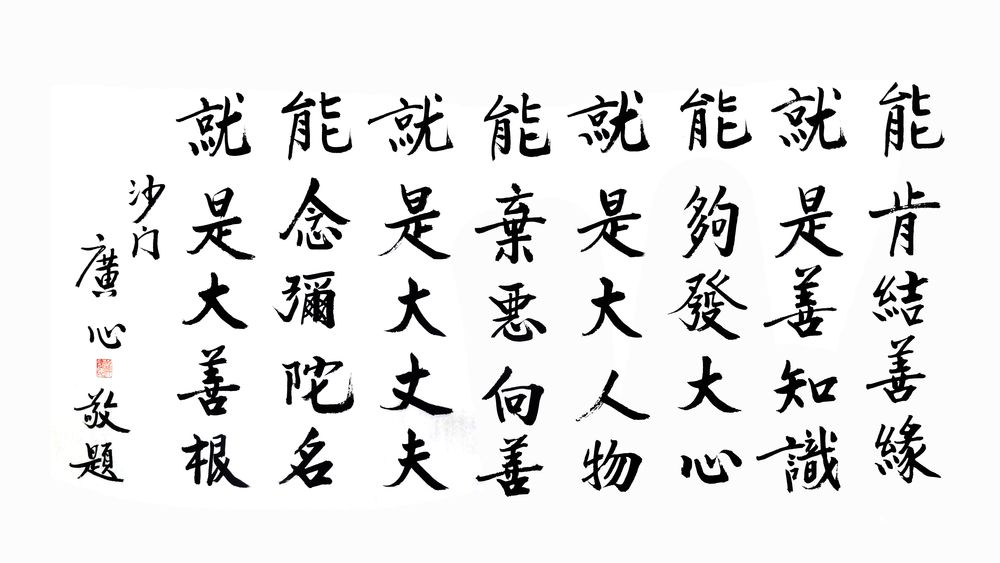 能肯結善緣
就是善知識
能夠發大心
就是大人物
能棄惡向善
就是大丈夫
能念彌陀名
就是大善根
沙门
廣心敬題